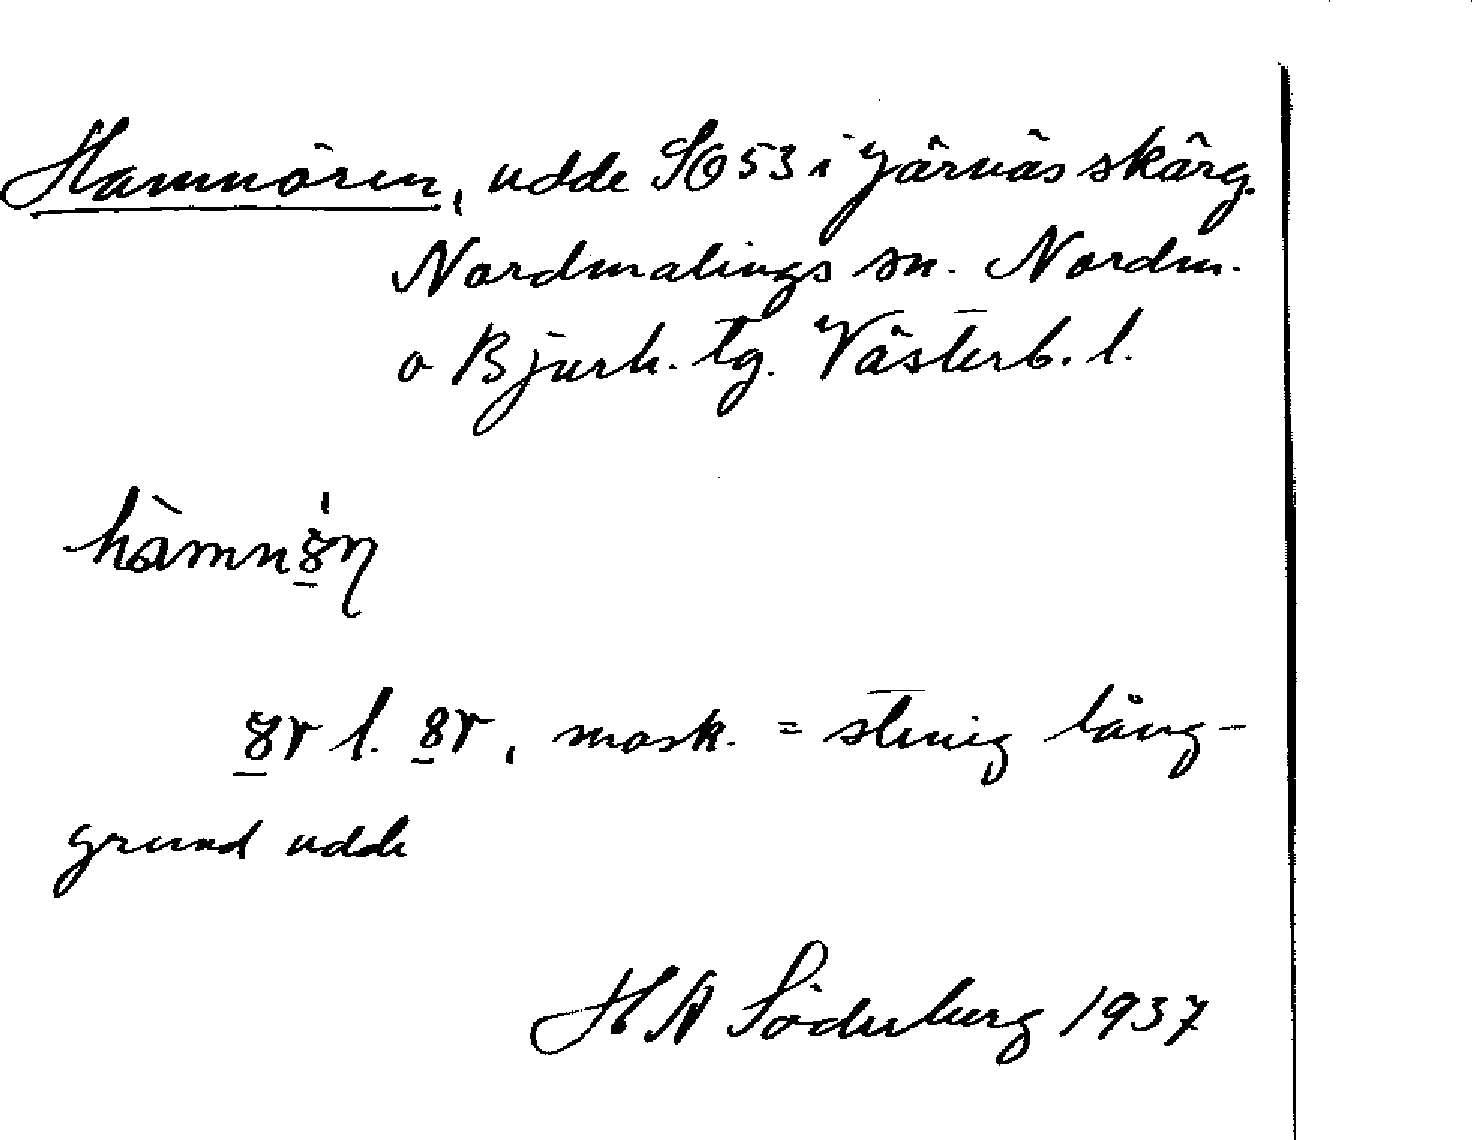 Hamnören, udde SO 53 i Järnäs skärg.
Nordmalings sn. Nordm.
o Bjurh. tg. Västerb. l.
hàmn
l. mask. = stenig lång-
grund udde
H A Söderberg 1937